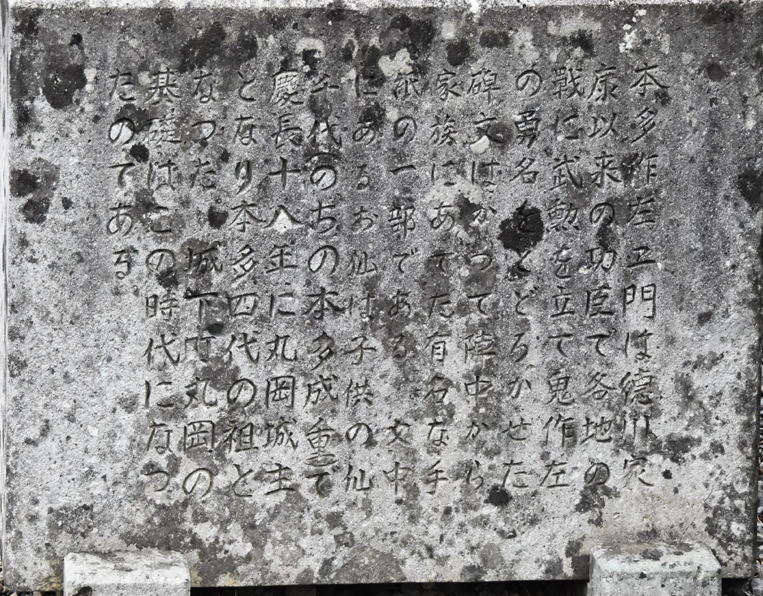 本多作左エ門は徳川家
康以来の功臣で各地の
戦に武勲を立て鬼作左
の勇名をとどろかせた
碑文はかつて陣中から
家族にあてた有名な手
紙の一部である 文中
にあるお仙は子供の仙
千代のちの本多成重で
慶長十八年に丸岡城主
となり本多四代の祖と
なつた 城下町丸岡の
基礎はこの時代になつ
たのである